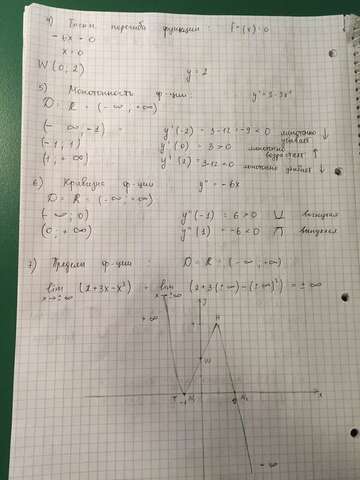 4) Точки перегиба функции : f''(x) = 0
-6x = 0
x = 0
W (0, 2) y = 2
5) Монотонность ф-ции: y' = 3-3x²
D = R = (-∞, +∞)
(-∞, -1) = y'(-2) = 3-12 = -9 < 0 монотонно убывает ↓
(-1, 1) y'(0) = 3 > 0 монотонно возрастает ↑
(1, +∞) y'(2) = 3-12 < 0 монотонно убывает ↓
6) Кривизна ф-ции y'' = -6x
D = R = (-∞; +∞)
(-∞; 0) y''(-1) = 6 > 0 ∪ выпуклая
(0; +∞) y''(1) = -6 < 0 ∩ выпуклая
7) Пределы ф-ции : D = R = (-∞, +∞)
lim x→±∞ (2+3x-x³) = lim x→±∞ (2+3(±∞)-(±∞)³) = ±∞
+∞
H
W
-1
N₂
x
-∞